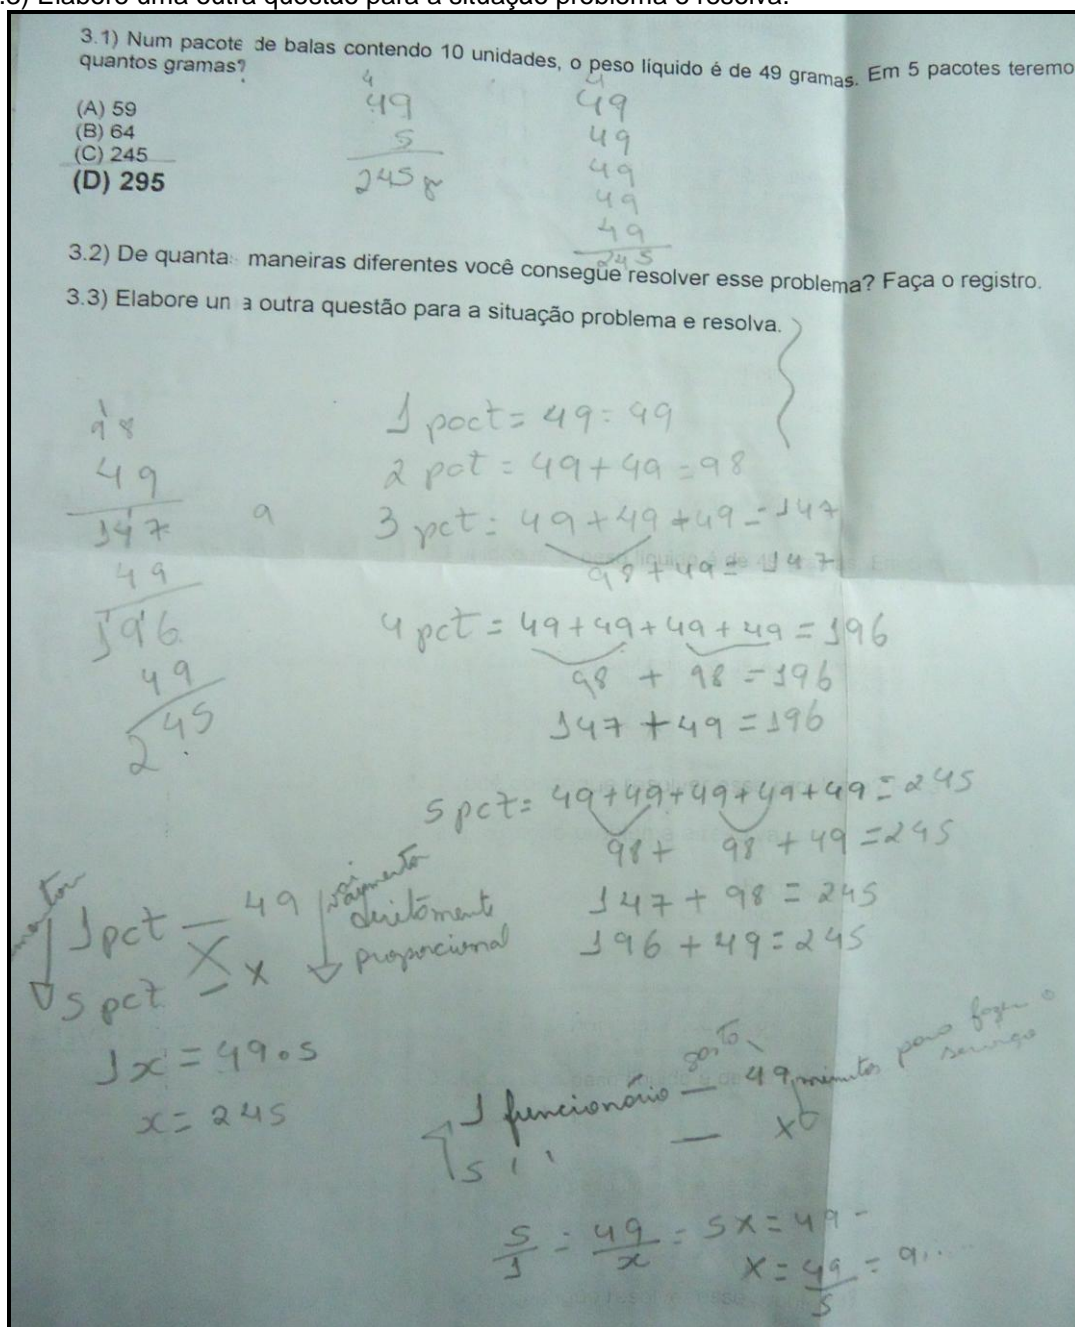 3.1) Num pacote de balas contendo 10 unidades, o peso líquido é de 49 gramas. Em 5 pacotes teremo
quantos gramas?
(A) 59
(B) 64
(C) 245
(D) 295
4
49
5
245 g
4
49
49
49
49
49
245
3.2) De quanta maneiras diferentes você consegue resolver esse problema? Faça o registro.
3.3) Elabore un a outra questão para a situação problema e resolva.
1
98
49
147
49
196
49
245
a
1 poct = 49 = 49
2 pct = 49 + 49 = 98
3 pct = 49 + 49 + 49 = 147
98 + 49 = 147
4 pct = 49 + 49 + 49 + 49 = 196
98 + 98 = 196
147 + 49 = 196
5 pct = 49 + 49 + 49 + 49 + 49 = 245
98 + 98 + 49 = 245
147 + 98 = 245
196 + 49 = 245
1 pct — 49
5 pct — x
diretamente
proporcional
1x = 49 . 5
x = 245
1 funcionário — gasta 49 minutos para fazer o
serviço
5 '' — x
5/1 = 49/x = 5x = 49
x = 49/5 = 9...